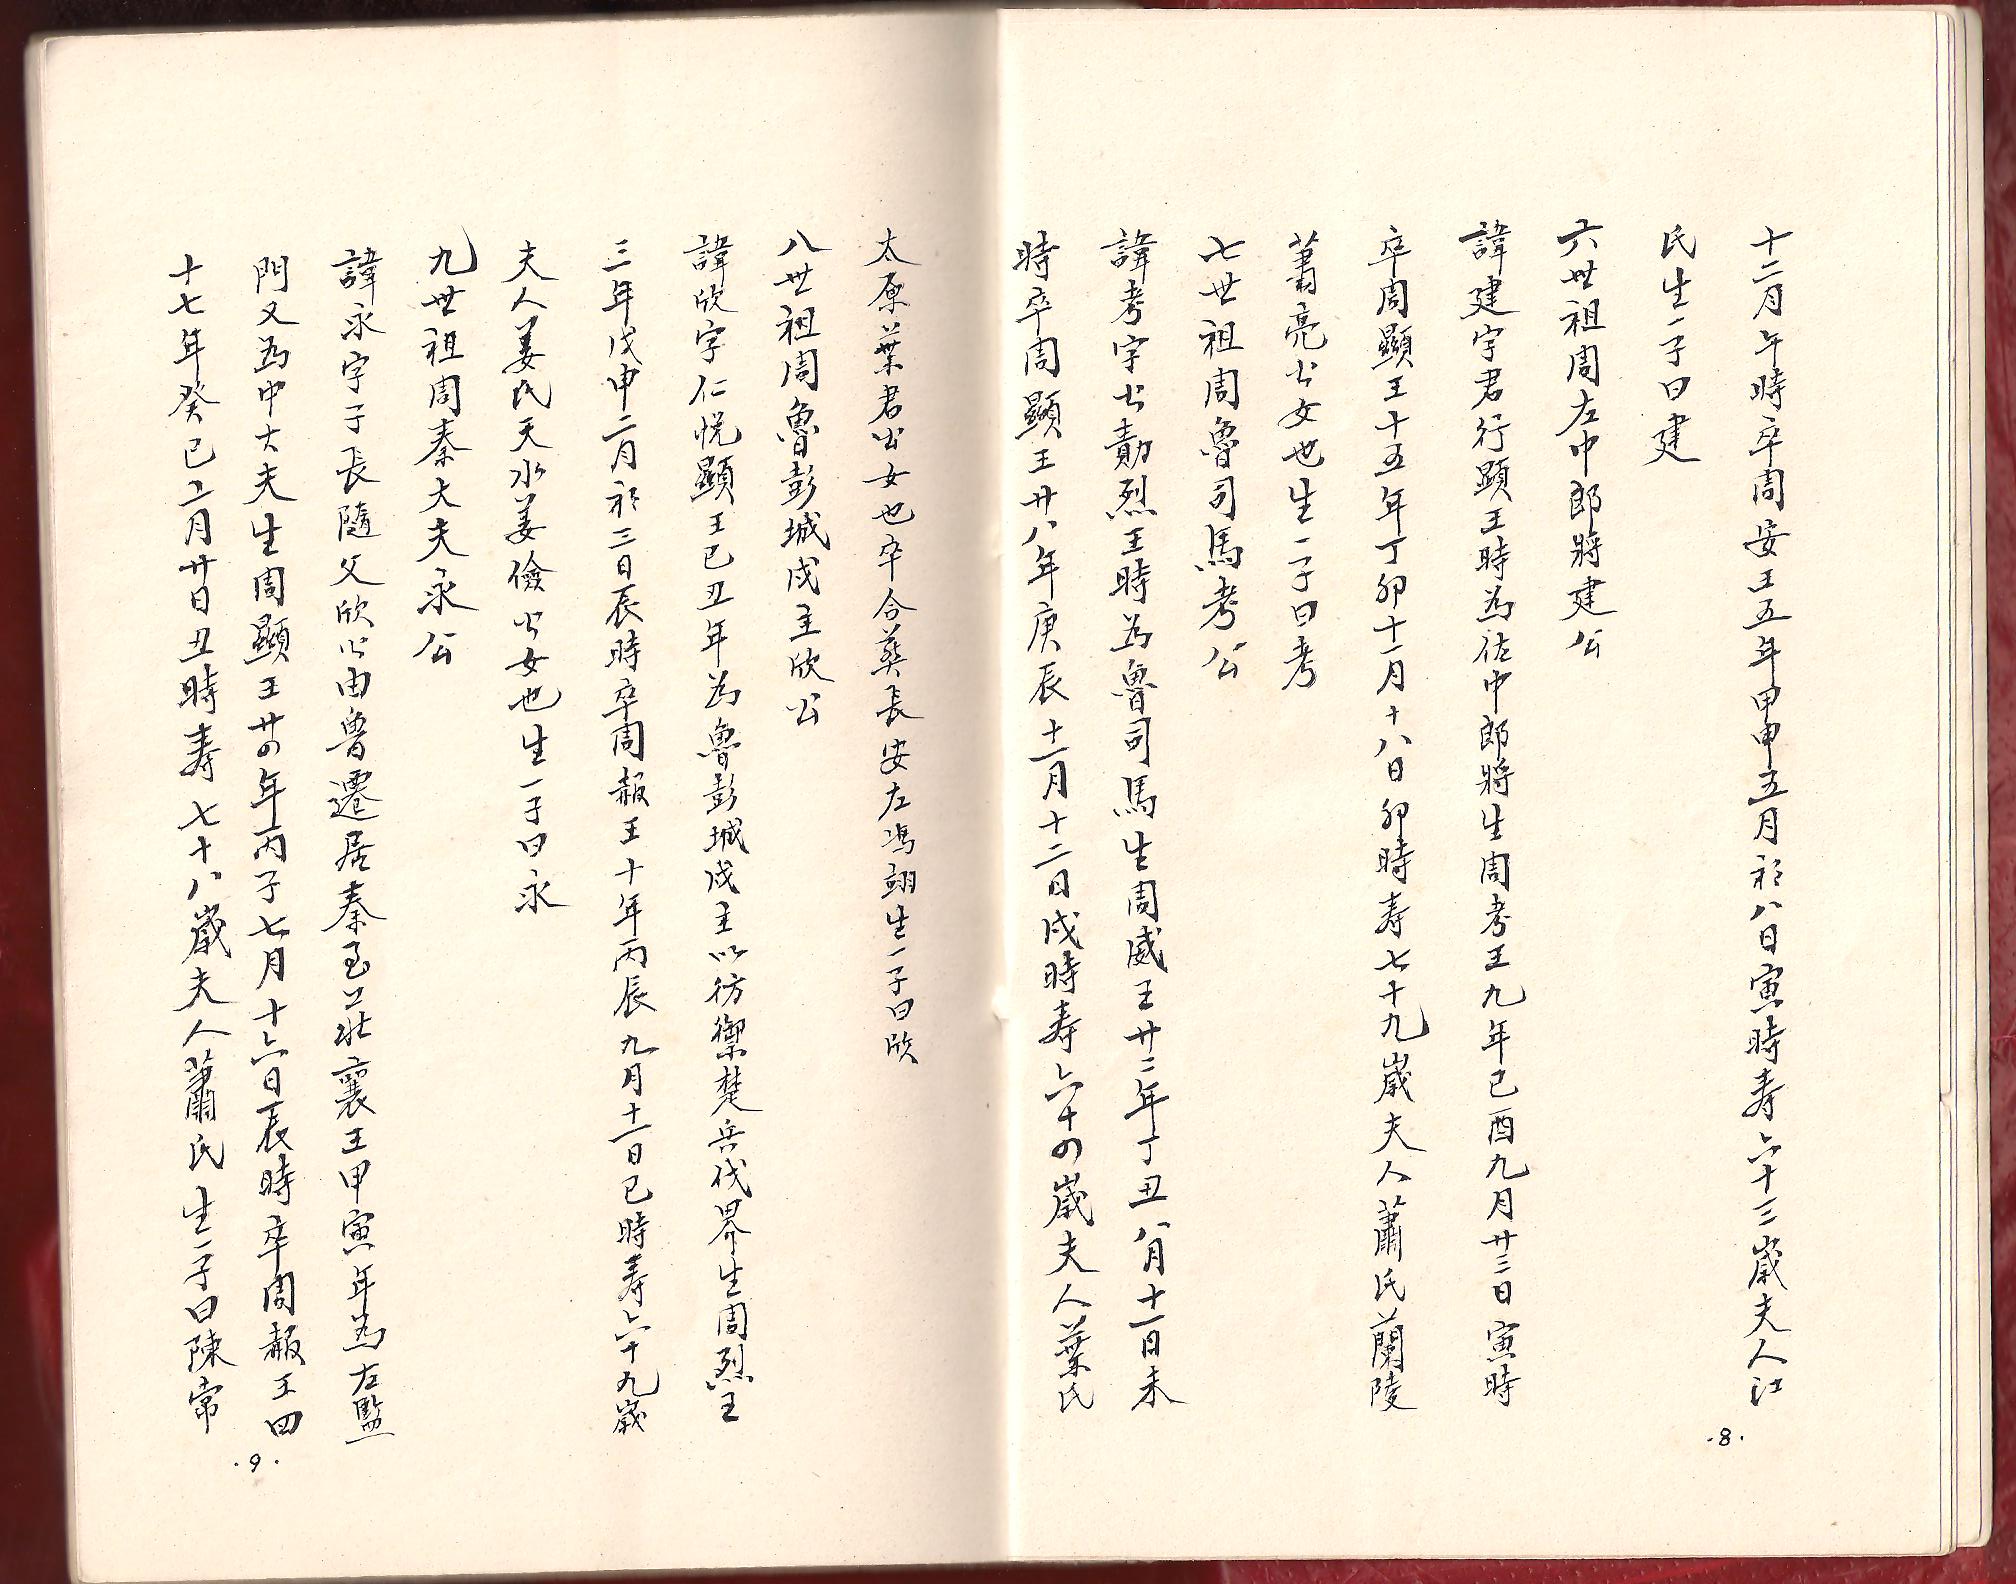 十二月午時卒周安王五年甲申五月初八日寅時寿六十三歲夫人江
氏生一子曰建
六世祖周左中郎將建公
諱建字君行顯王時為佐中郎將生周考王九年己酉九月廿三日寅時
卒周顯王十五年丁卯十一月十八日卯時寿七十九歲夫人蕭氏蘭陵
蕭亮公女也生一子曰考
七世祖周魯司馬考公
諱考字公勣烈王時為魯司馬生周威王廿二年丁丑八月十一日未
時卒周顯王廿八年庚辰十一月十二日戌時寿六十四歲夫人葉氏
·8·
太原葉君公女也卒合葬長安左馮翊生一子曰欣
八世祖周魯彭城戍主欣公
諱欣字仁悅顯王己丑年為魯彭城戍主以彷禦楚兵伐界生周烈王
三年戊申二月初三日辰時卒周赧王十年丙辰九月十一日巳時寿六十九歲
夫人姜氏天水姜儉公女也生一子曰永
九世祖周秦大夫永公
諱永字子長隨父欣公由魯遷居秦至荘襄王甲寅年為左監
門又為中大夫生周顯王廿四年丙子七月十六日辰時卒周赧王四
十七年癸巳二月廿日丑時寿七十八歲夫人蕭氏生一子曰陳常
·9·